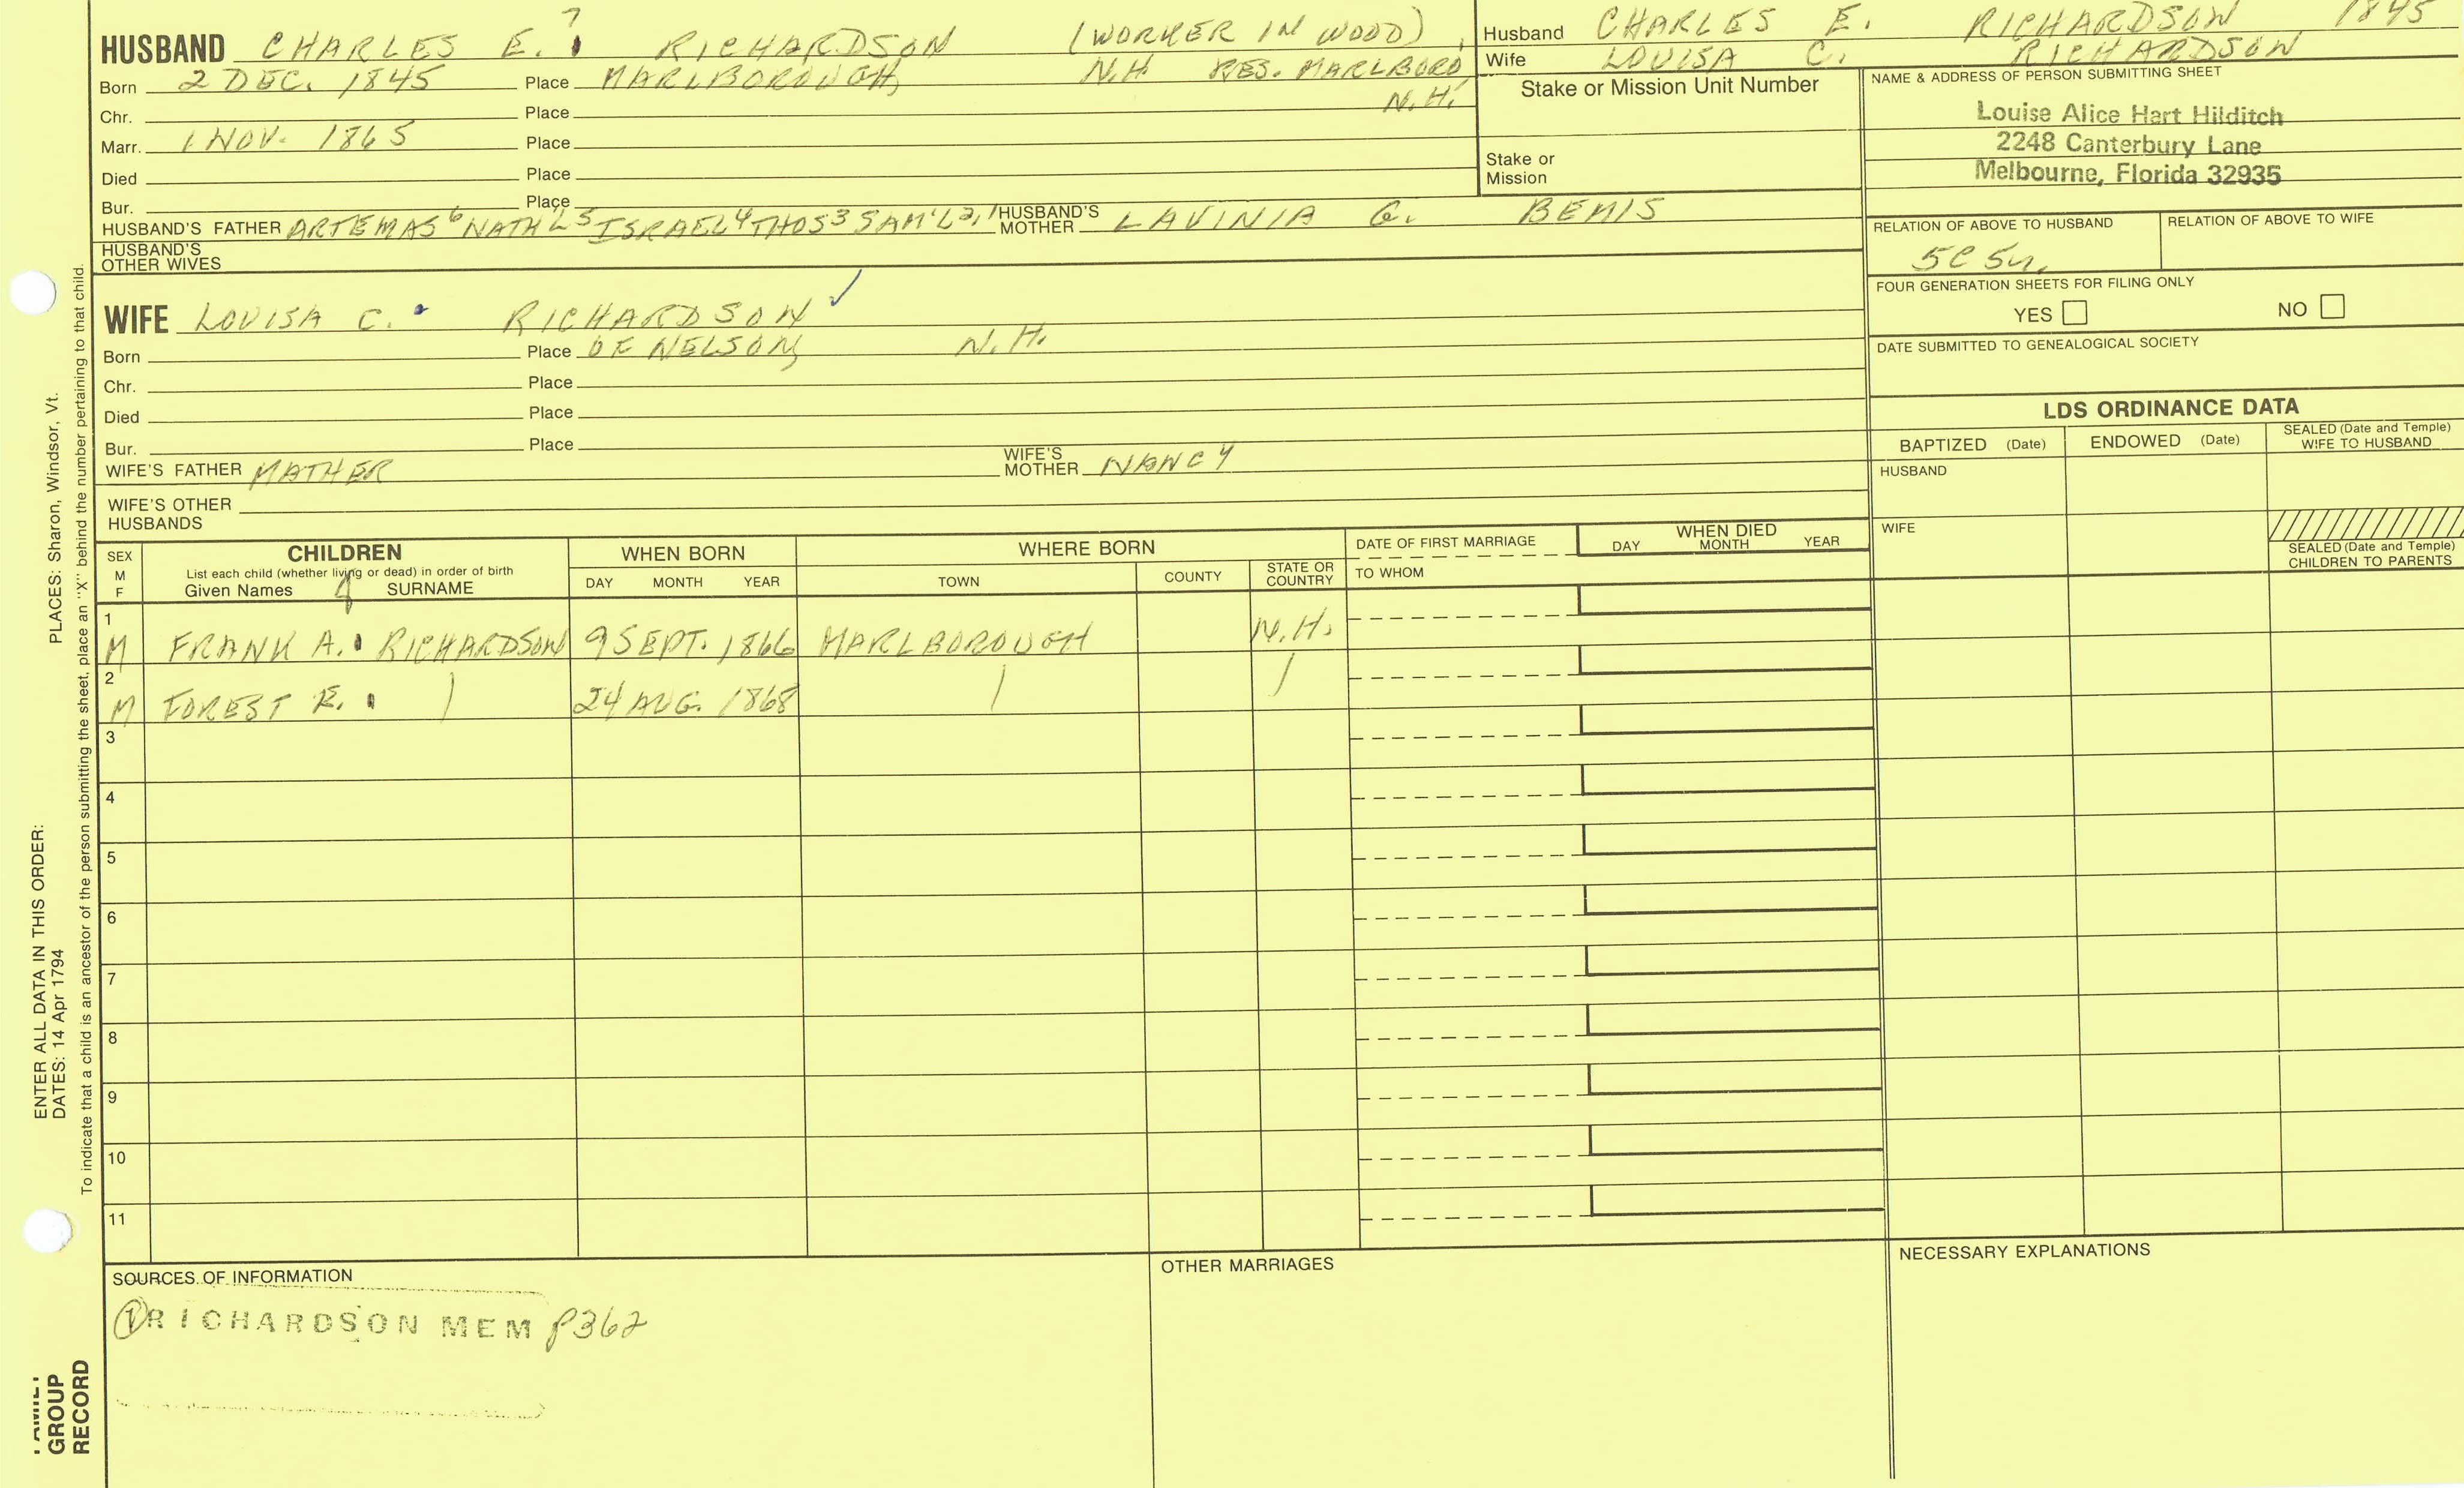 7
HUSBAND CHARLES E. RICHARDSON (WORKER IN WOOD)
Born 2 DEC. 1845 Place MARLBOROUGH, N.H. RES. MARLBORO N.H.
Chr. Place
Marr. 1 NOV. 1865 Place
Died Place
Bur. Place
HUSBAND'S FATHER ARTEMAS 6 NATH'L 5 ISRAEL 4 THOS 3 SAM'L 2,1 HUSBAND'S MOTHER LAVINIA G. BEMIS
HUSBAND'S OTHER WIVES
WIFE LOUISA C. RICHARDSON ✓
Born Place OF NELSON, N.H.
Chr. Place
Died Place
Bur. Place
WIFE'S FATHER MATHER WIFE'S MOTHER NANCY
WIFE'S OTHER HUSBANDS
Husband CHARLES E. RICHARDSON 1845
Wife LOUISA C. RICHARDSON
Stake or Mission Unit Number
Stake or
Mission
NAME & ADDRESS OF PERSON SUBMITTING SHEET
Louise Alice Hart Hilditch
2248 Canterbury Lane
Melbourne, Florida 32935
RELATION OF ABOVE TO HUSBAND RELATION OF ABOVE TO WIFE
5C 5
FOUR GENERATION SHEETS FOR FILING ONLY
YES NO
DATE SUBMITTED TO GENEALOGICAL SOCIETY
LDS ORDINANCE DATA
BAPTIZED (Date) ENDOWED (Date) SEALED (Date and Temple) WIFE TO HUSBAND
HUSBAND
WIFE
SEALED (Date and Temple) CHILDREN TO PARENTS
SEX M F CHILDREN WHEN BORN WHERE BORN DATE OF FIRST MARRIAGE WHEN DIED
List each child (whether living or dead) in order of birth
Given Names SURNAME DAY MONTH YEAR TOWN COUNTY STATE OR COUNTRY TO WHOM DAY MONTH YEAR
8
1 M FRANK A. RICHARDSON 9 SEPT. 1866 MARLBOROUGH N.H.
2 M FOREST E. | 24 AUG. 1868 | |
3
4
5
6
7
8
9
10
11
SOURCES OF INFORMATION
1 RICHARDSON MEM P362
OTHER MARRIAGES
NECESSARY EXPLANATIONS
ENTER ALL DATA IN THIS ORDER:
DATES: 14 Apr 1794
PLACES: Sharon, Windsor, Vt.
To indicate that a child is an ancestor of the person submitting the sheet, place an "X" behind the number pertaining to that child.
FAMILY
GROUP
RECORD